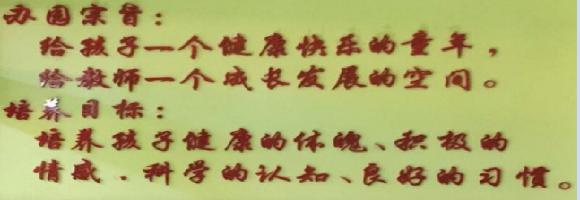 办园宗旨：
给孩子一个健康快乐的童年，
给教师一个成长发展的空间。
培养目标：
培养孩子健康的体魄、积极的
情感、科学的认知、良好的习惯。